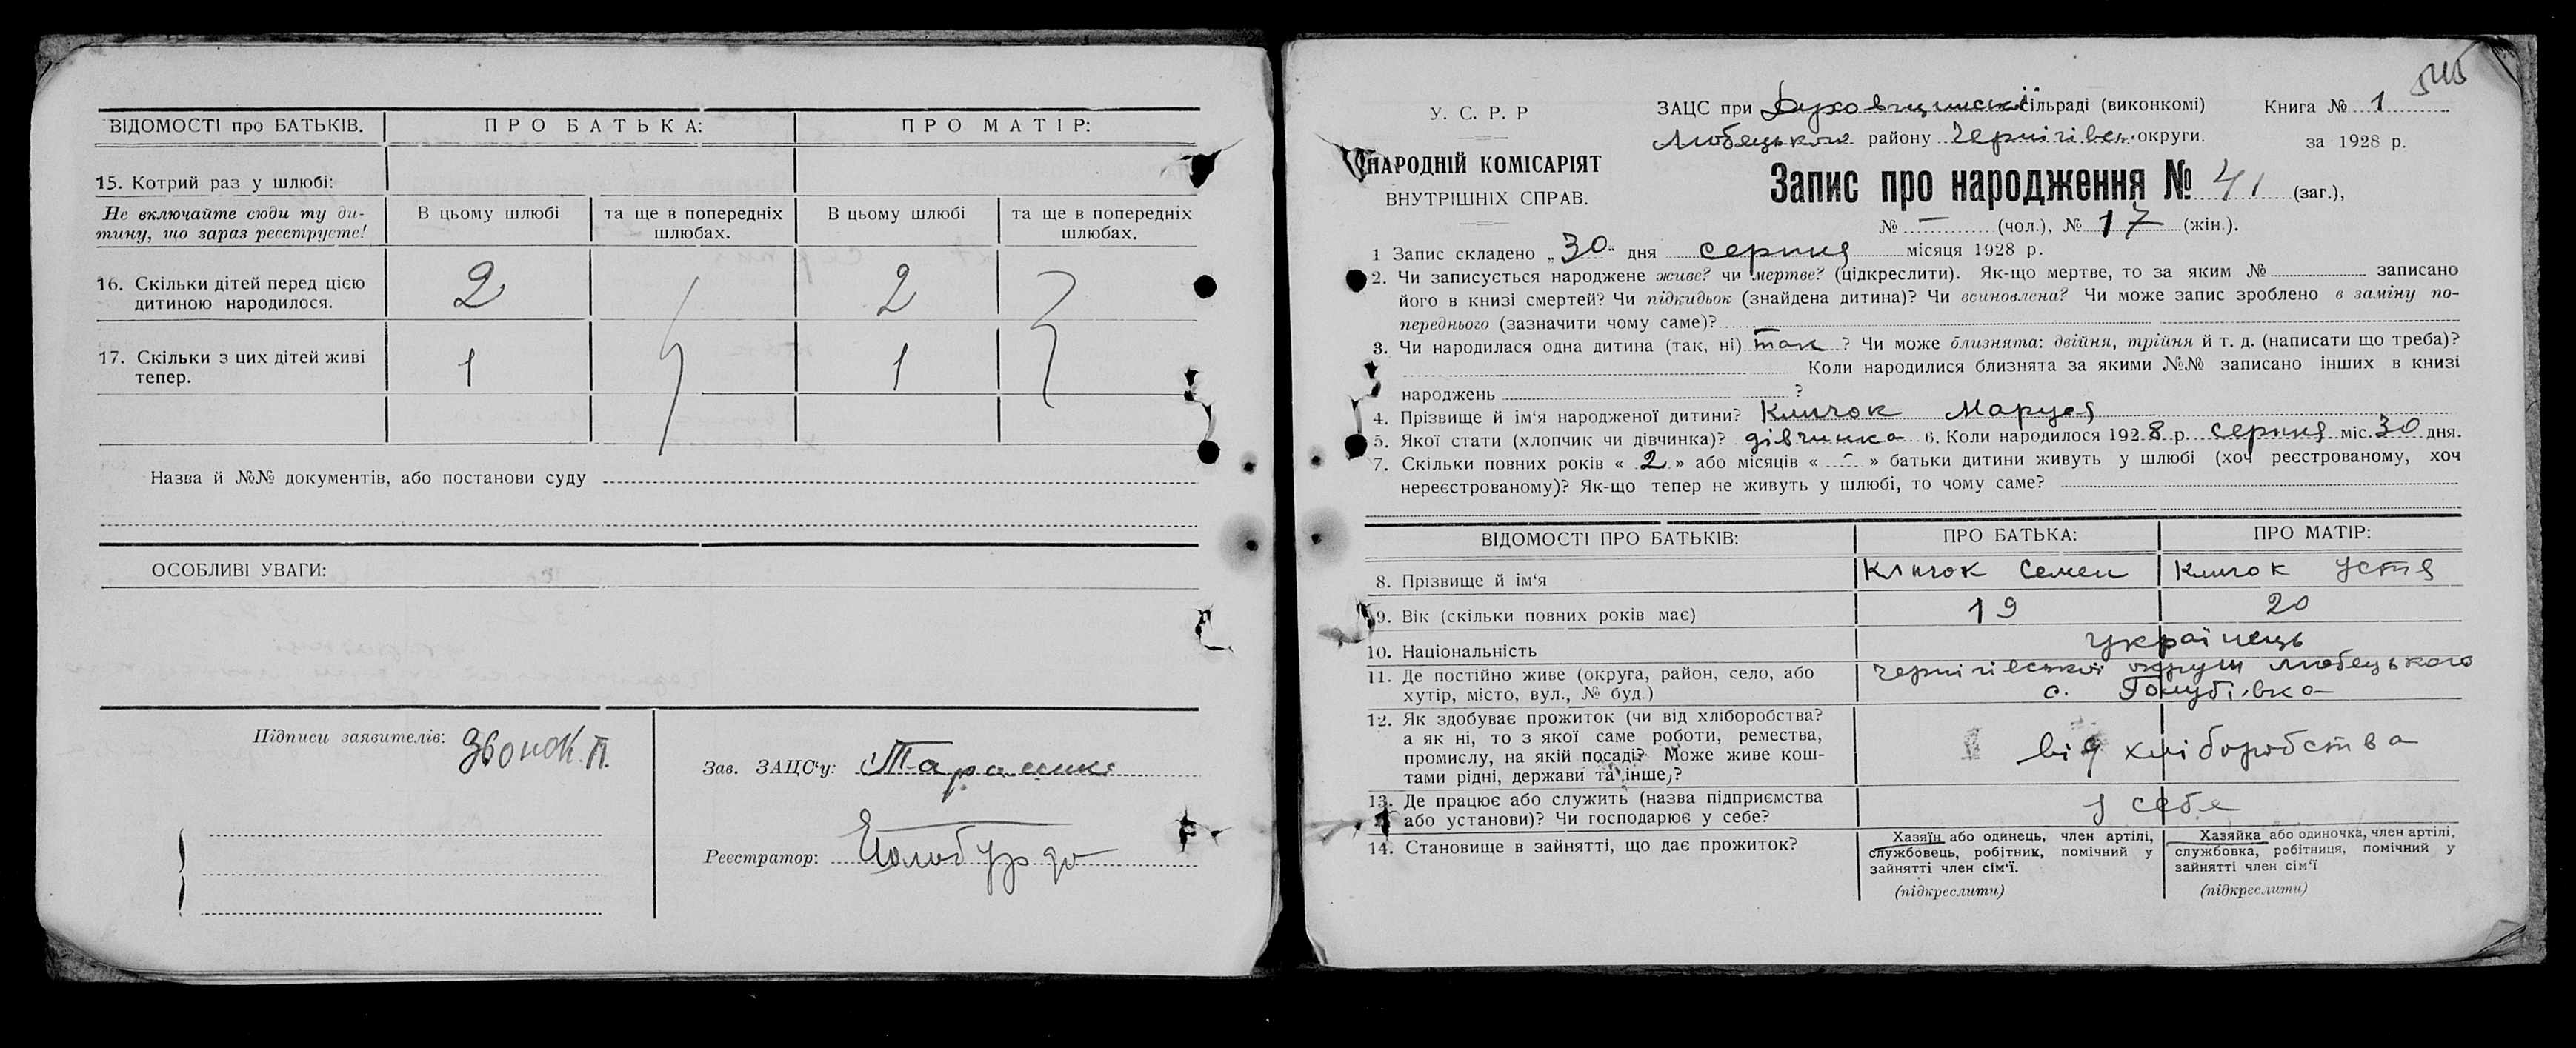 ВІДОМОСТІ про БАТЬКІВ. ПРО БАТЬКА: ПРО МАТІР:
15. Котрий раз у шлюбі:
Не включайте сюди ту ди-
тину, що зараз реєструєте!
В цьому шлюбі та ще в попередніх шлюбах. В цьому шлюбі та ще в попередніх шлюбах.
16. Скільки дітей перед цією
дитиною народилося. 2 2
17. Скільки з цих дітей живі
тепер. 1 1
Назва й №№ документів, або постанови суду
ОСОБЛИВІ УВАГИ:
Підписи заявителів: Звонок. П.
Зав. ЗАЦС'у:
Реєстратор:
У. С. Р. Р
НАРОДНІЙ КОМІСАРІЯТ
ВНУТРІШНІХ СПРАВ.
ЗАЦС при Духовщинській сільраді (виконкомі)
Любецького району Чернігівськ. округи.
Книга № 1
за 1928 р.
Запис про народження № 41 (заг.),
№ – (чол.), № 17 (жін.).
1 Запис складено „30" дня серпня місяця 1928 р.
2. Чи записується народжене живе? чи мертве? (підкреслити). Як-що мертве, то за яким № записано
його в книзі смертей? Чи підкидьок (знайдена дитина)? Чи всиновлена? Чи може запис зроблено в заміну по-
переднього (зазначити чому саме)?
3. Чи народилася одна дитина (так, ні) так ? Чи може близнята: двійня, трійня й т. д. (написати що треба)?
Коли народилися близнята за якими №№ записано інших в книзі
народжень ?
4. Прізвище й ім'я народженої дитини? Кличок Маруся
5. Якої стати (хлопчик чи дівчинка)? дівчинка 6. Коли народилося 1928 р. серпня міс. 30 дня.
7. Скільки повних років « 2 » або місяців « – » батьки дитини живуть у шлюбі (хоч реєстрованому, хоч
нереєстрованому)? Як-що тепер не живуть у шлюбі, то чому саме?
ВІДОМОСТІ ПРО БАТЬКІВ: ПРО БАТЬКА: ПРО МАТІР:
8. Прізвище й ім'я Кличок Семен Кличок Устя
9. Вік (скільки повних років має) 19 20
10. Національність українець
11. Де постійно живе (округа, район, село, або
хутір, місто, вул., № буд.)
Чернігівської округи Любецького
с. Голубівка
12. Як здобуває прожиток (чи від хліборобства?
а як ні, то з якої саме роботи, ремества,
промислу, на якій посаді? Може живе кош-
тами рідні, держави та інше)?
від хліборобства
13. Де працює або служить (назва підприємства
або установи)? Чи господарює у себе?
у себе
14. Становище в зайнятті, що дає прожиток?
Хазяїн або одинець, член артілі,
службовець, робітник, помічний у
зайнятті член сім'ї.
(підкреслити)
Хазяйка або одиночка, член артілі,
службовка, робітниця, помічний у
зайнятті член сім'ї
(підкреслити)